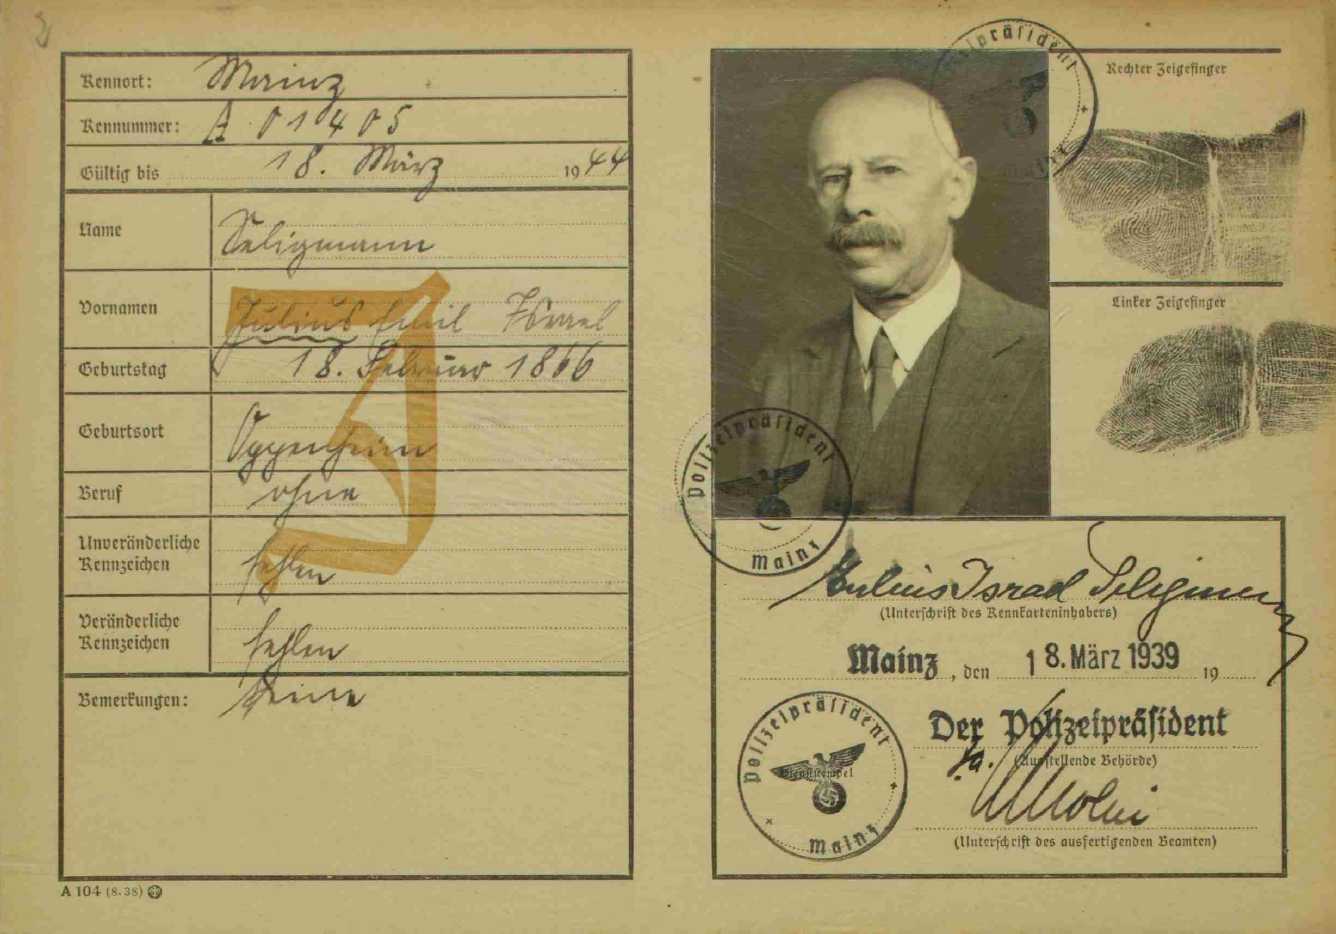 Kennort: Mainz
Kennummer: A 01405
Gültig bis 18. März 1944
Name Seligmann
Vornamen Julius Emil Israel
Geburtstag 18. Februar 1866
Geburtsort Oppenheim
Beruf ohne
Unveränderliche Kennzeichen fehlen
Veränderliche Kennzeichen fehlen
Bemerkungen: keine
J
A 104 (8.38)
Polizeipräsident
Mainz
Rechter Zeigefinger
Linker Zeigefinger
Polizeipräsident
Mainz
Julius Israel Seligmann
(Unterschrift des Kennkarteninhabers)
Mainz, den 18. März 1939 19
Der Polizeipräsident
(Ausstellende Behörde)
Polizeipräsident
Dienststempel
Mainz
(Unterschrift des ausfertigenden Beamten)